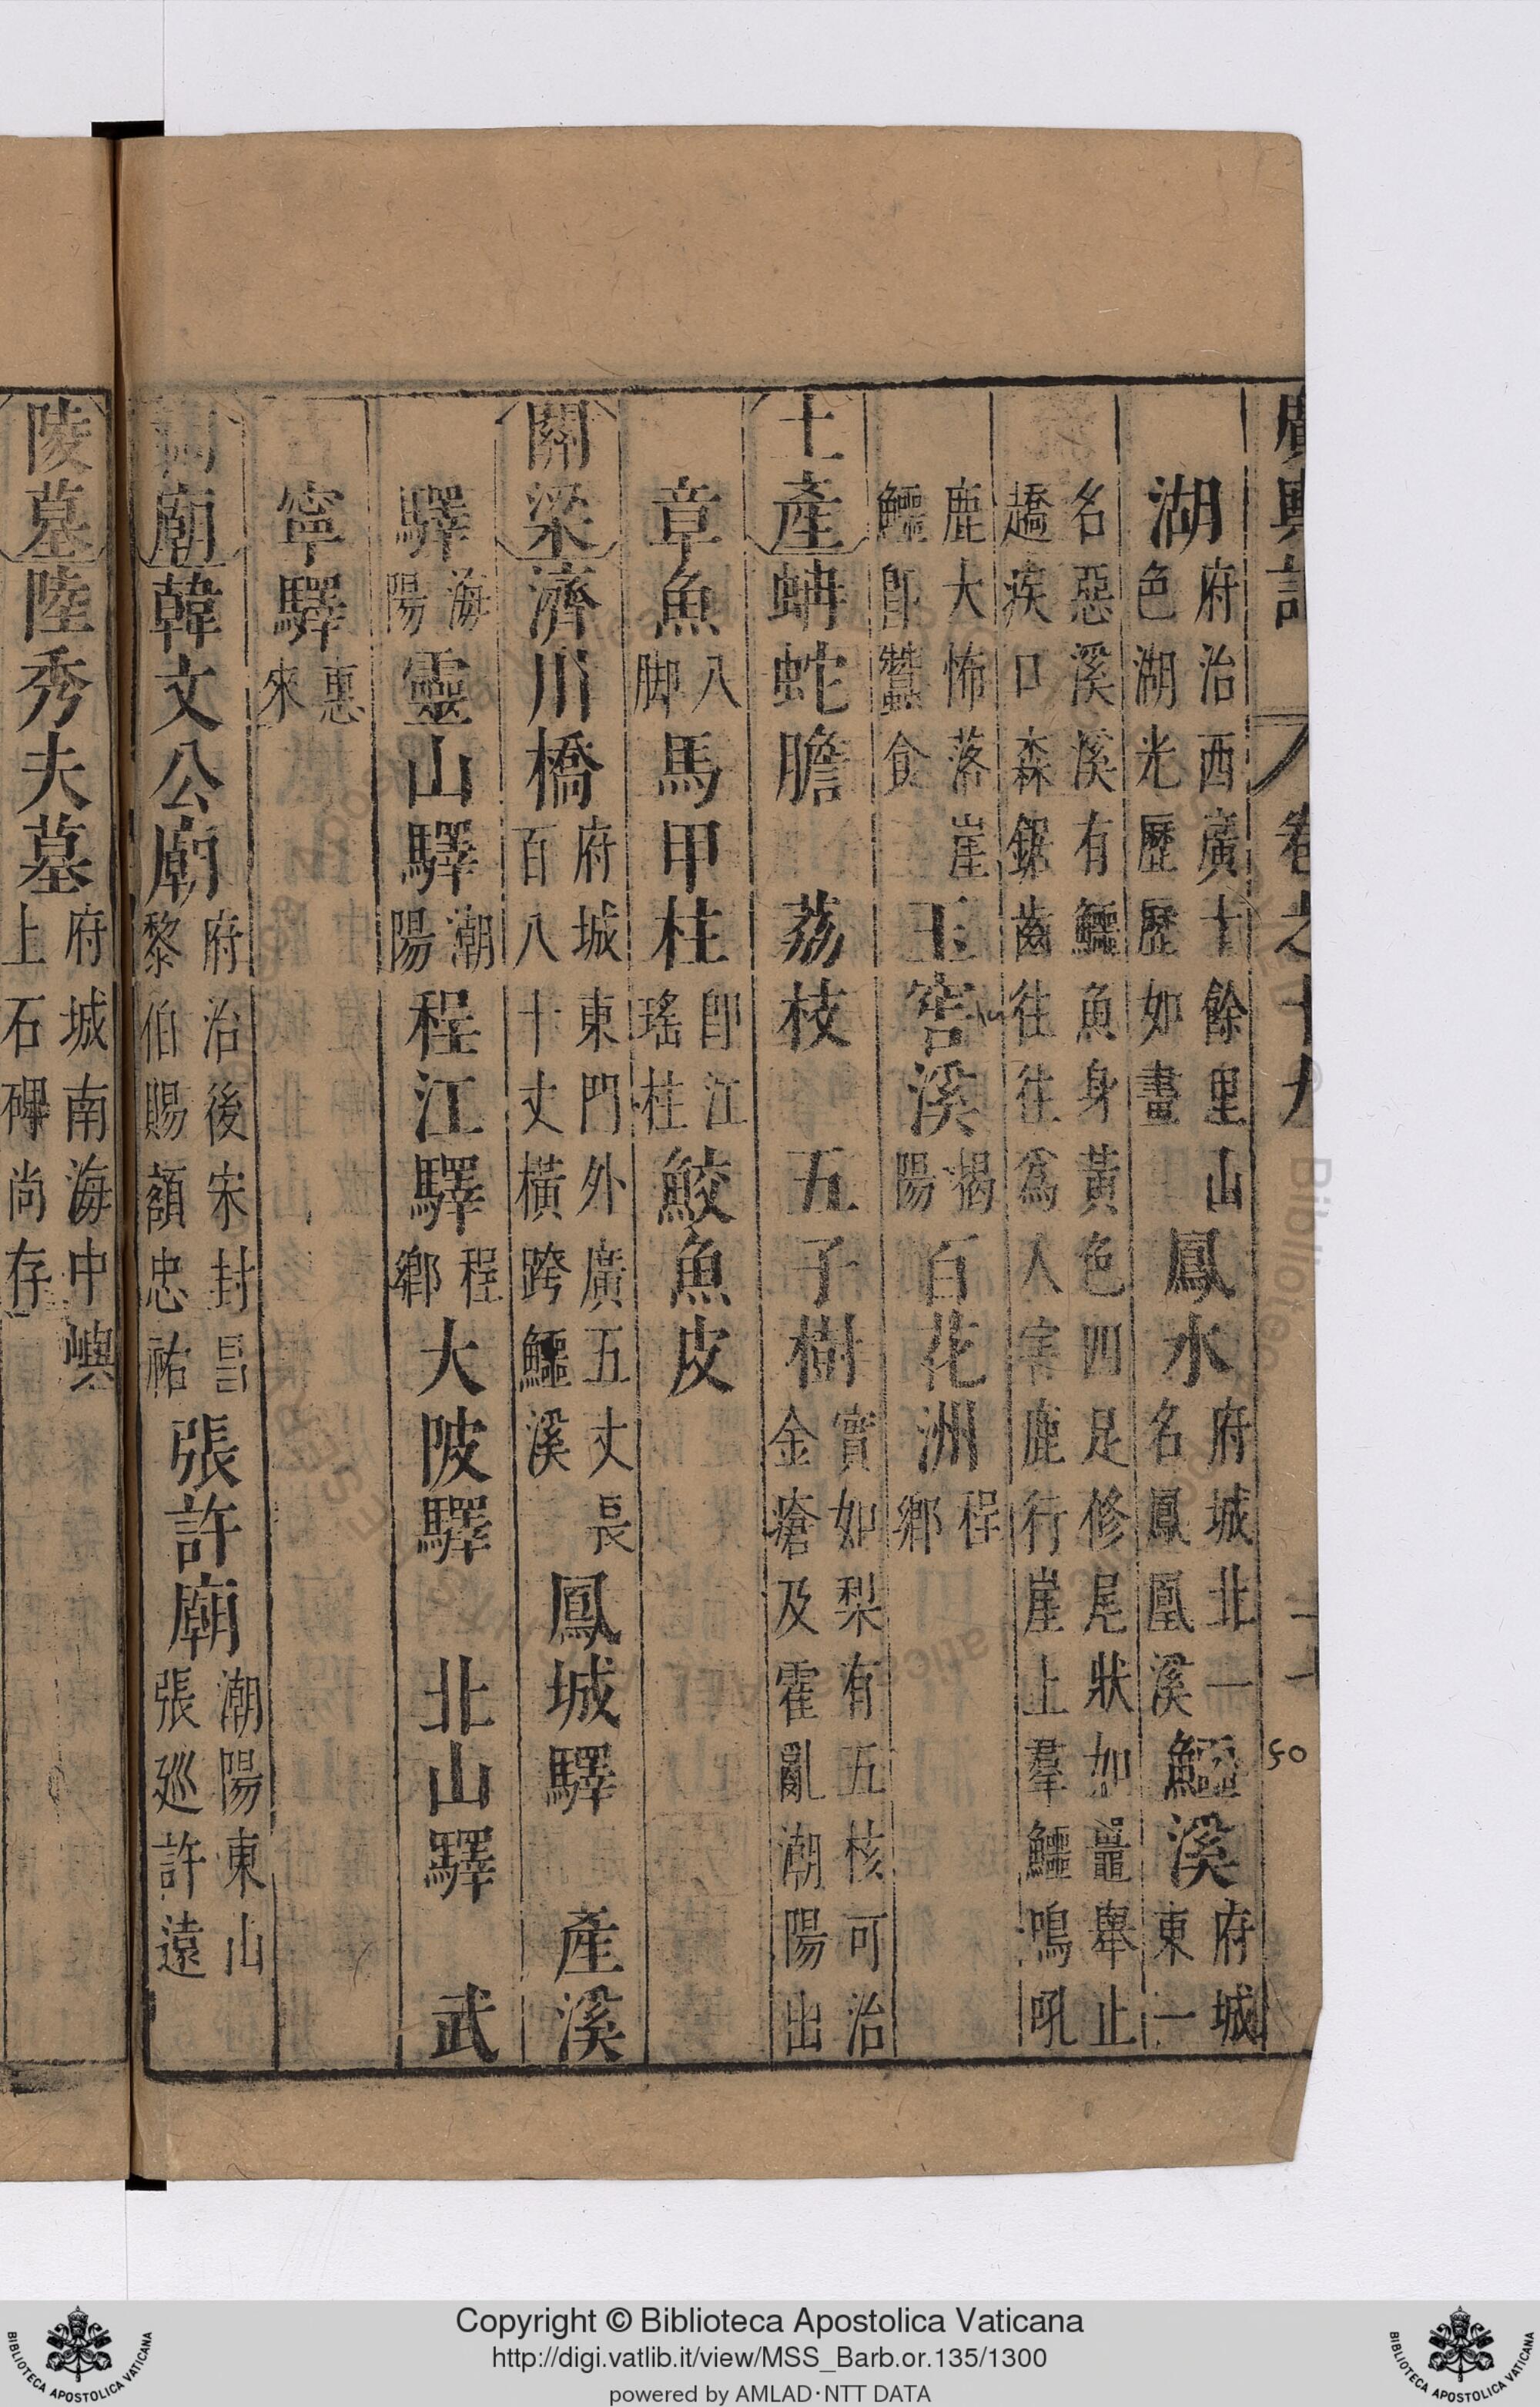 廣輿記 卷之十九 十一
50
湖府治西廣十餘里山色湖光歷歷如畫 鳳水府城北一名鳳凰溪 鱷溪府城東一
名惡溪溪有鱷魚身黃色四足修尾狀如鼉舉止趫疾口森鋸齒往往為人害鹿行崖上羣鱷鳴吼
鹿大怖落崖鱷即蠶食 玉窖溪揭陽 百花洲程鄉
土產 蚺蛇膽 荔枝 五子樹實如梨有五核可治金瘡及霍亂潮陽出
章魚八脚 馬甲柱即江瑤柱 鮫魚皮
關梁 濟川橋府城東門外廣五丈長百八十丈橫跨鱷溪 鳳城驛 產溪
驛海陽 靈山驛潮陽 程江驛程鄉 大陂驛 北山驛 武
寧驛惠來
祠廟 韓文公廟府治後宋封昌黎伯賜額忠祐 張許廟潮陽東山張巡許遠
陵墓 陸秀夫墓府城南海中嶼上石碑尚存
Copyright © Biblioteca Apostolica Vaticana
http://digi.vatlib.it/view/MSS_Barb.or.135/1300
powered by AMLAD·NTT DATA
BIBLIOTECA APOSTOLICA VATICANA
BIBLIOTECA APOSTOLICA VATICANA